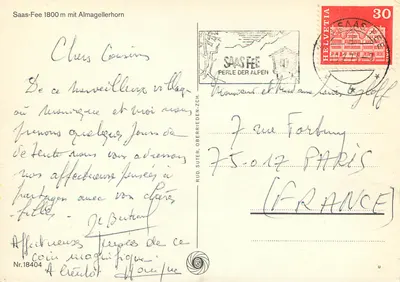 Saas-Fee 1800 m mit Almagellerhorn
Chers Cousins
De ce merveilleux village
où Monique et moi nous
prenons quelques jours de
détente nous vous adressons
nos affectueuses pensées à
partager avec vos chères
filles.
Affectueuses pensées de ce
coin magnifique
A bientôt Monique
Nr. 18404
RUD. SUTER, OBERRIEDEN-ZCH.
SAAS FEE
PERLE DER ALPEN
SAAS FEE
HELVETIA
30
Monsieur et Madame
7 rue
75-017 PARIS
(FRANCE)